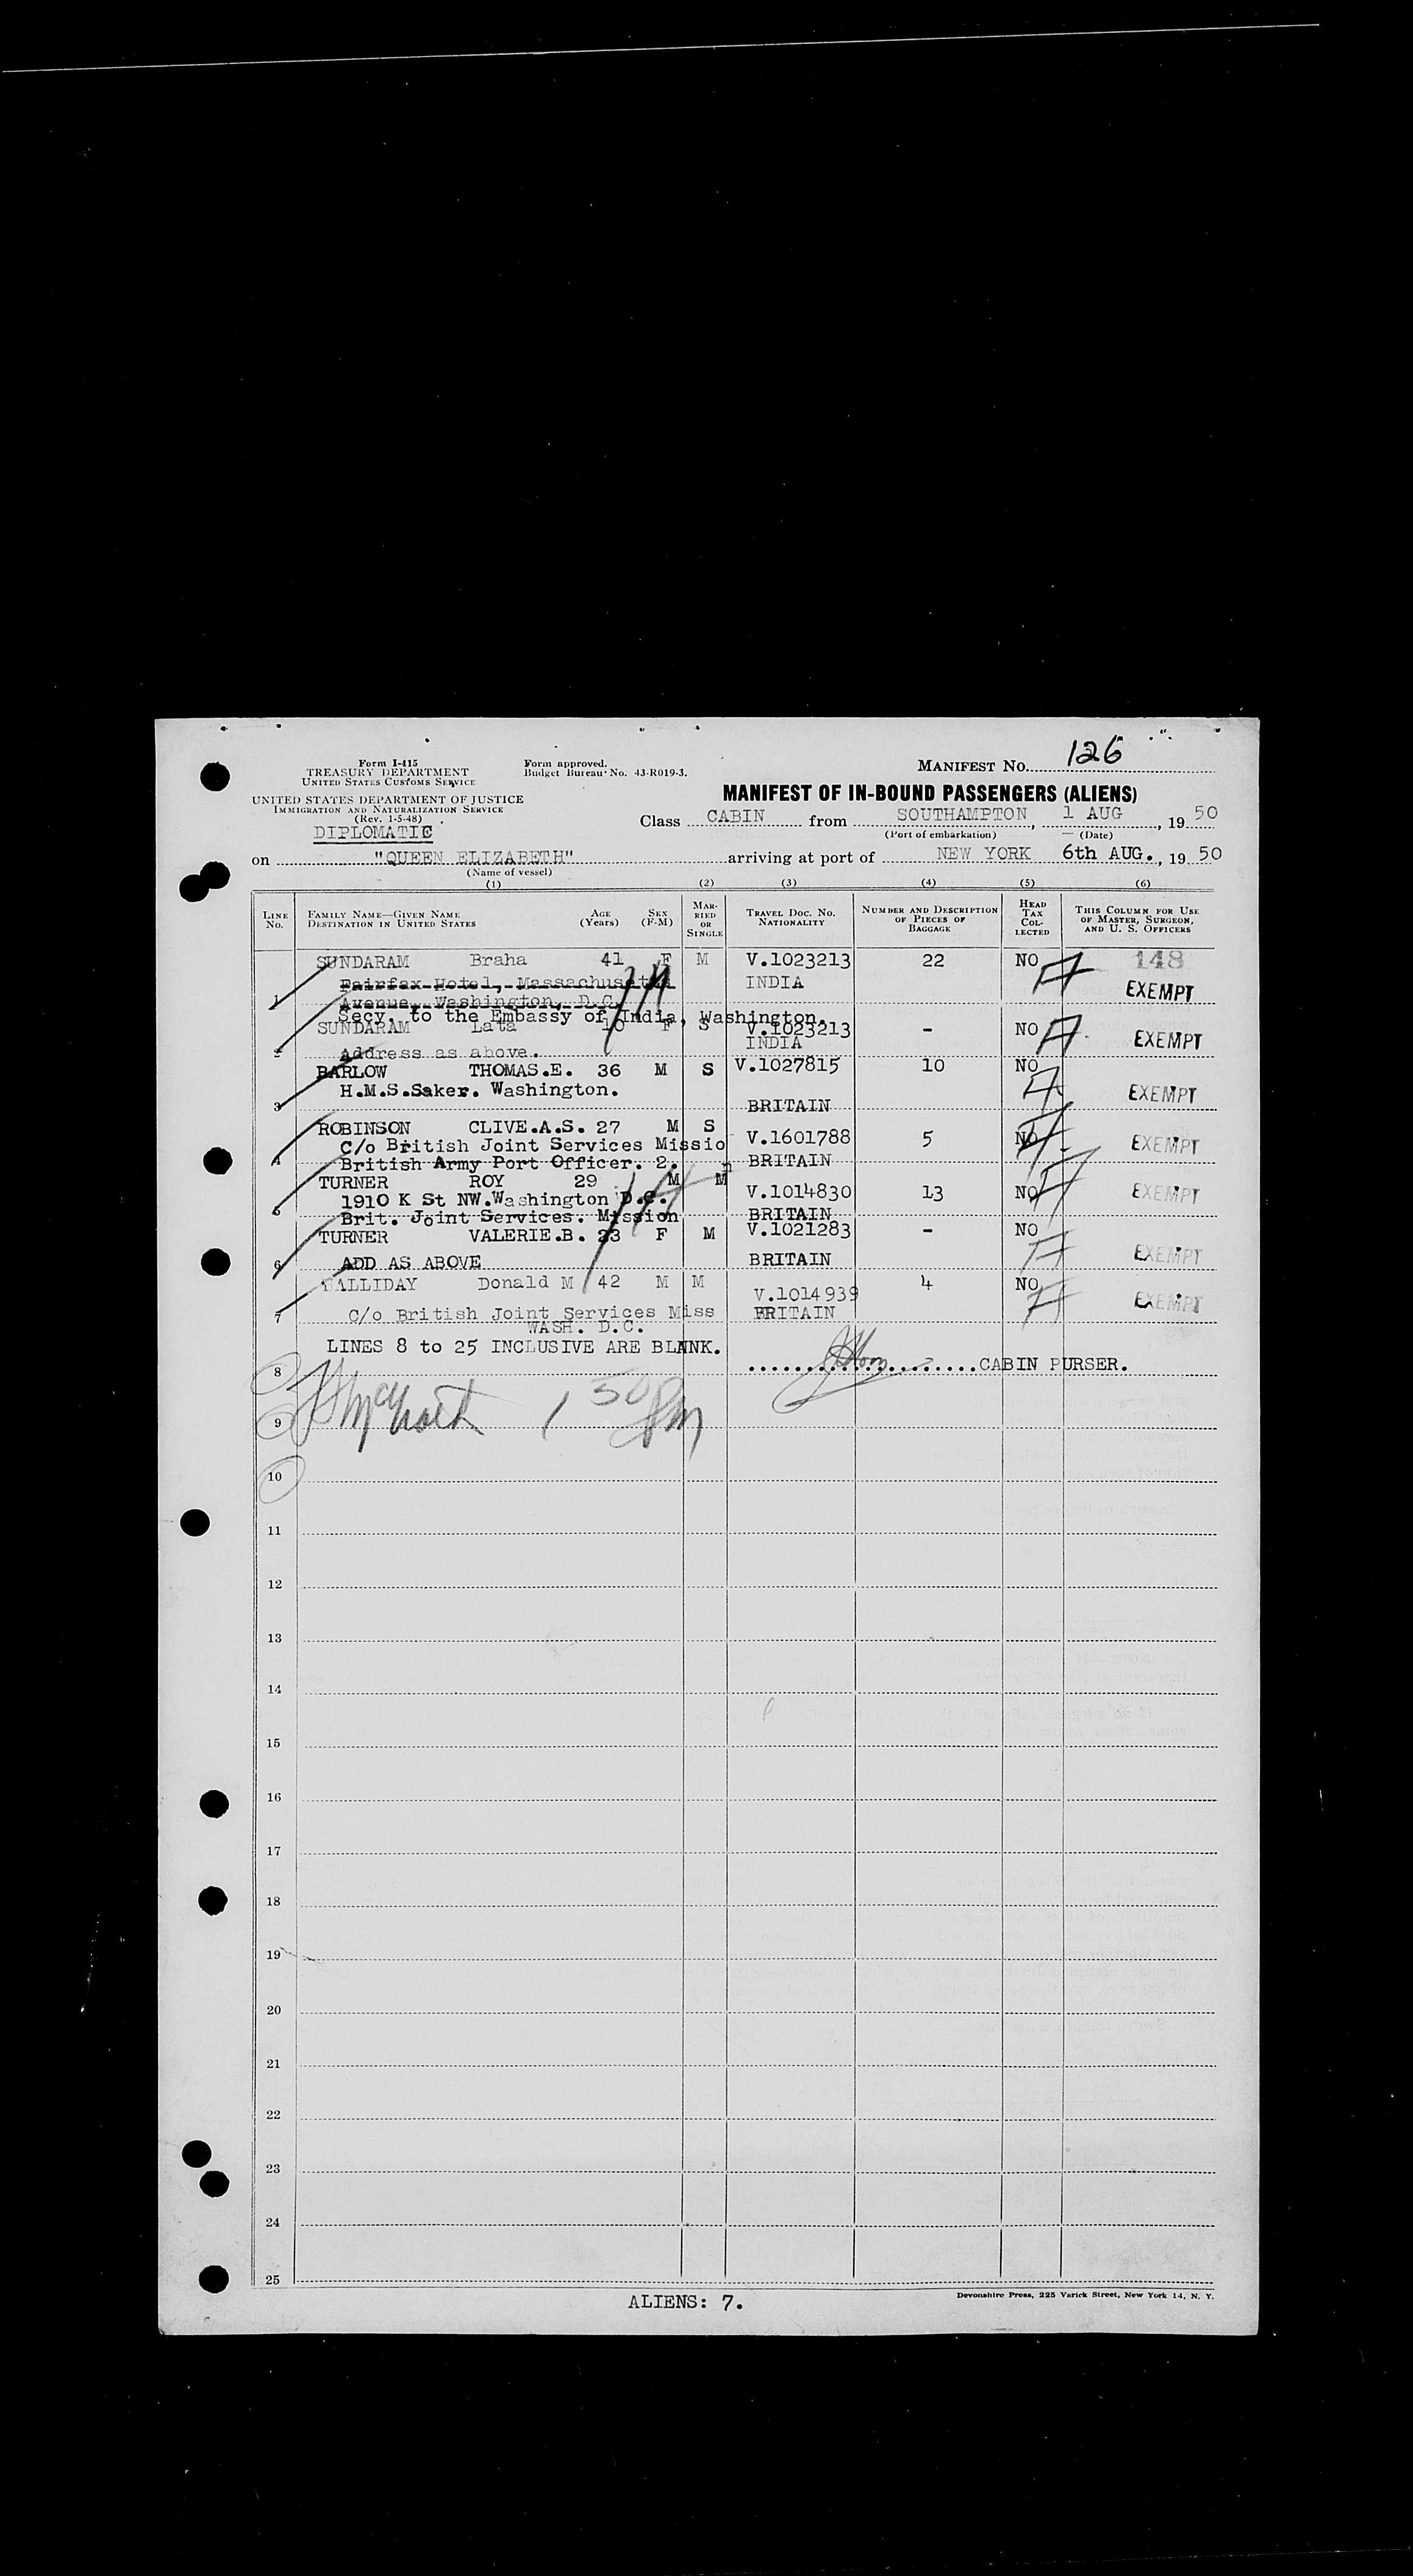 Form I-415
TREASURY DEPARTMENT
UNITED STATES CUSTOMS SERVICE
Form approved.
Budget Bureau No. 43-R019-3.
MANIFEST No. 126
UNITED STATES DEPARTMENT OF JUSTICE
IMMIGRATION AND NATURALIZATION SERVICE
(Rev. 1-5-48)
DIPLOMATIC
MANIFEST OF IN-BOUND PASSENGERS (ALIENS)
Class CABIN from SOUTHAMPTON, 1 AUG, 19 50
(Port of embarkation) (Date)
on "QUEEN ELIZABETH" arriving at port of NEW YORK 6th AUG., 19 50
(Name of vessel)
(1) (2) (3) (4) (5) (6)
LINE No. FAMILY NAME—GIVEN NAME DESTINATION IN UNITED STATES AGE (Years) SEX (F-M) MARRIED OR SINGLE TRAVEL DOC. NO. NATIONALITY NUMBER AND DESCRIPTION OF PIECES OF BAGGAGE HEAD TAX COLLECTED THIS COLUMN FOR USE OF MASTER, SURGEON, AND U. S. OFFICERS
SUNDARAM Braha 41 F M V.1023213 22 NO 148
Fairfax Hotel, Massachusetts INDIA EXEMPT
1 Avenue, Washington, D.C.
Secy. to the Embassy of India, Washington.
SUNDARAM Lata 10 F S V.1023213 - NO EXEMPT
INDIA
2 Address as above.
BARLOW THOMAS.E. 36 M S V.1027815 10 NO
H.M.S.Saker. Washington. EXEMPT
3 BRITAIN
ROBINSON CLIVE.A.S. 27 M S V.1601788 5 NO EXEMPT
C/o British Joint Services Mission
4 British Army Port Officer. 2. BRITAIN
TURNER ROY 29 M M V.1014830 13 NO EXEMPT
1910 K St NW.Washington D.C.
5 Brit. Joint Services. Mission BRITAIN
TURNER VALERIE.B. 23 F M V.1021283 - NO
6 ADD AS ABOVE BRITAIN EXEMPT
HALLIDAY Donald M 42 M M V.1014939 4 NO EXEMPT
7 C/o British Joint Services Miss BRITAIN
WASH. D.C.
LINES 8 to 25 INCLUSIVE ARE BLANK.
8 CABIN PURSER.
9 1 50 PM
10
11
12
13
14
15
16
17
18
19
20
21
22
23
24
25
ALIENS: 7.
Devonshire Press, 225 Varick Street, New York 14, N. Y.